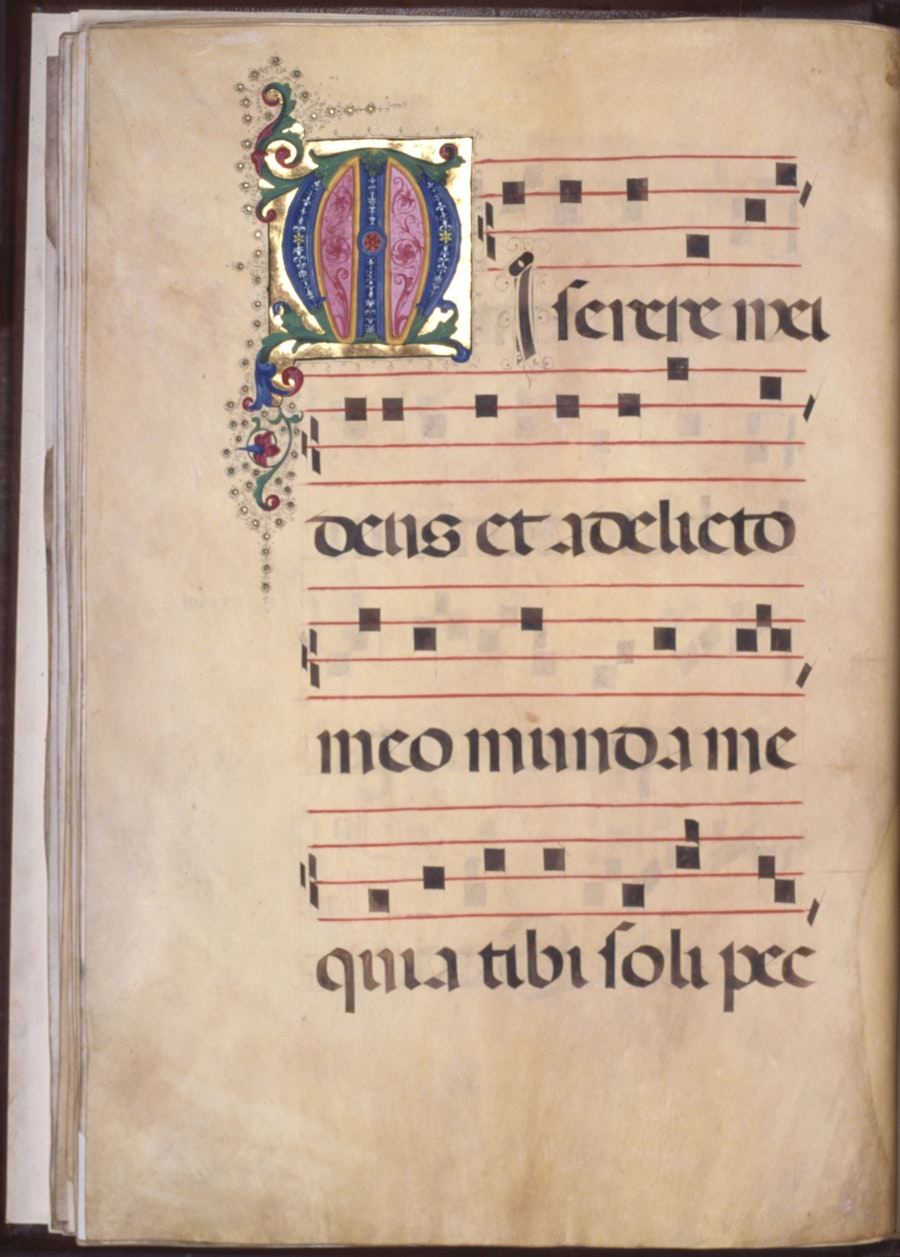 MIſerere mei
deus et a delicto
meo munda me
quia tibi ſoli pec